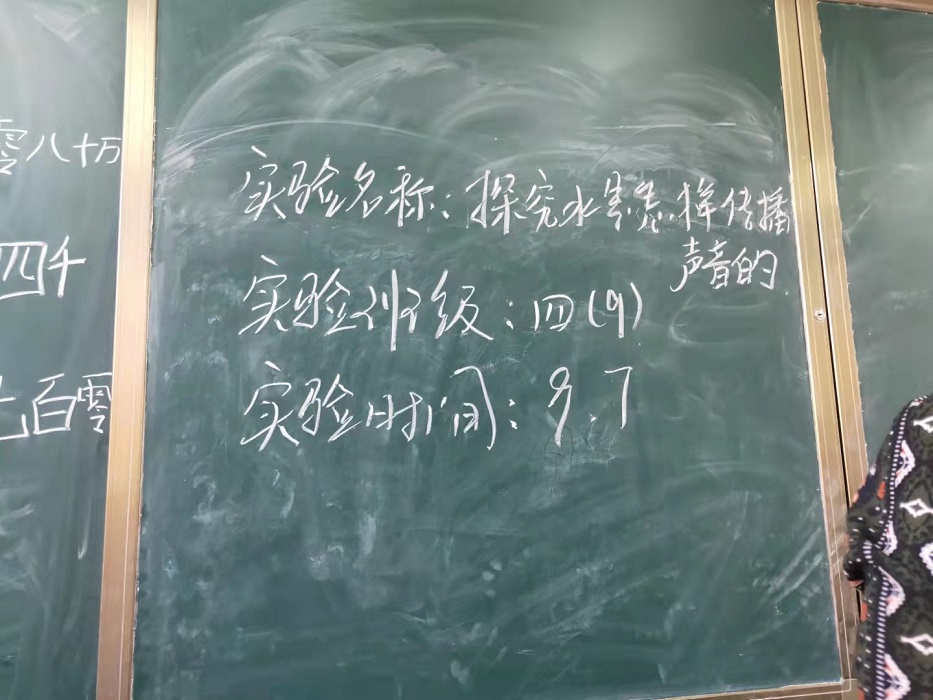 零八十万
四千
七百零
实验名称：探究水是怎样传播
声音的
实验班级：四(9)
实验时间：9.7